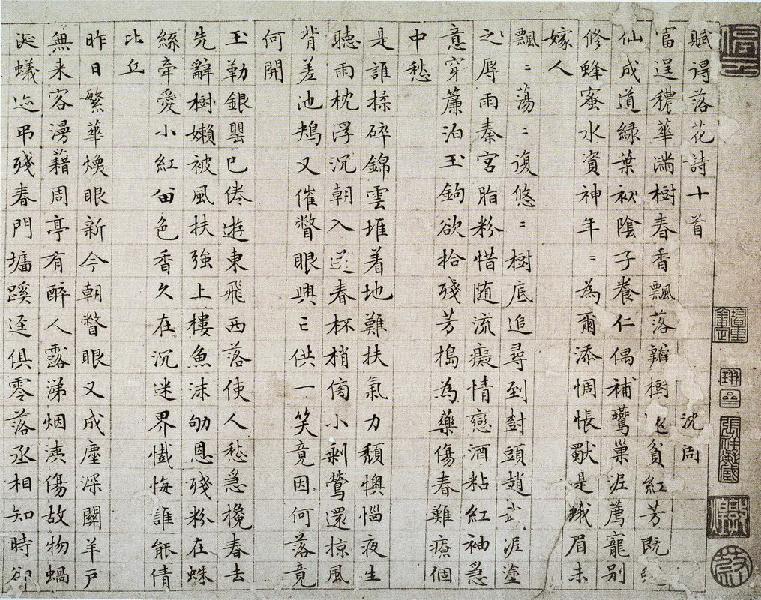 賦得落花詩十首
沈周
富逞穠華滿樹春香飄落瓣樹還貧紅芳既
仙成道綠葉初陰子養仁偶補鶯巢泥薦寵別
修蜂蜜水資神年〻為爾添惆悵獸是蛾眉未
嫁人
飄〻蕩〻復悠〻樹底追尋到封頭趙武泥塗
之辱雨秦宮脂粉惜隨流癡情戀酒粘紅袖急
意穿簾泊玉鉤欲拾殘芳搗為藥傷春難療個
中愁
是誰揉碎錦雲堆著地難扶氣力頹懊惱夜生
聽雨枕浮沉朝入送春杯梢傍小剩鶯還掠風
背差池鴂又催瞥眼興亡供一笑竟因何落竟
何開
玉勒銀罌已倦遊東飛西落使人愁急攙春去
先辭樹嬾被風扶強上樓魚沫劬恩殘粉在蛛
絲牽愛小紅留色香久在沉迷界懺悔誰能倩
比丘
昨日繁華煥眼新今朝瞥眼又成塵深關羊戶
無来客漫藉周亭有醉人露涕烟洟傷故物蝸
涎蟻迹弔殘春門墻蹊逕俱零落丞相知時卻